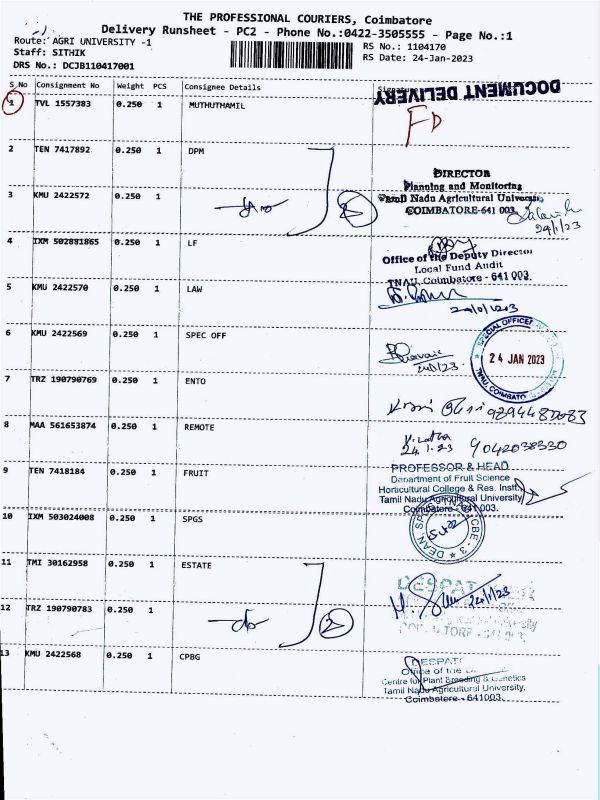 THE PROFESSIONAL COURIERS, Coimbatore
Delivery Runsheet - PC2 - Phone No.:0422-3505555 - Page No.:1
Route: AGRI UNIVERSITY -1
RS No.: 1104170
Staff: SITHIK
RS Date: 24-Jan-2023
DRS No.: DCJB110417001
S.No Consignment No Weight PCS Consignee Details Signature
DOCUMENT DELIVERY
1 TVL 1557383 0.250 1 MUTHUTHAMIL
FD
2 TEN 7417892 0.250 1 DPM
DIRECTOR
Planning and Monitoring
Tamil Nadu Agricultural University
COIMBATORE-641 003.
24/1/23
3 KMU 2422572 0.250 1
2
4 IXM 502881865 0.250 1 LF
Office of the Deputy Director
Local Fund Audit
TNAU, Coimbatore - 641 003.
5 KMU 2422570 0.250 1 LAW
6 KMU 2422569 0.250 1 SPEC OFF
SPECIAL OFFICER
24 JAN 2023
TNAU, COIMBATORE
7 TRZ 190790769 0.250 1 ENTO
8 MAA 561653874 0.250 1 REMOTE
24.1.23 9042038330
9 TEN 7418184 0.250 1 FRUIT
PROFESSOR & HEAD
Department of Fruit Science
Horticultural College & Res. Instt.
Tamil Nadu Agricultural University
Coimbatore - 641 003.
10 IXM 503024008 0.250 1 SPGS
DEAN SPGS
CBE - 3
11 TMI 30162958 0.250 1 ESTATE
DESPAT
24/1/23
12 TRZ 190790783 0.250 1
do 2
13 KMU 2422568 0.250 1 CPBG
DESPAT
Office of the
Centre for Plant Breeding & Genetics
Tamil Nadu Agricultural University,
Coimbatore - 641003.